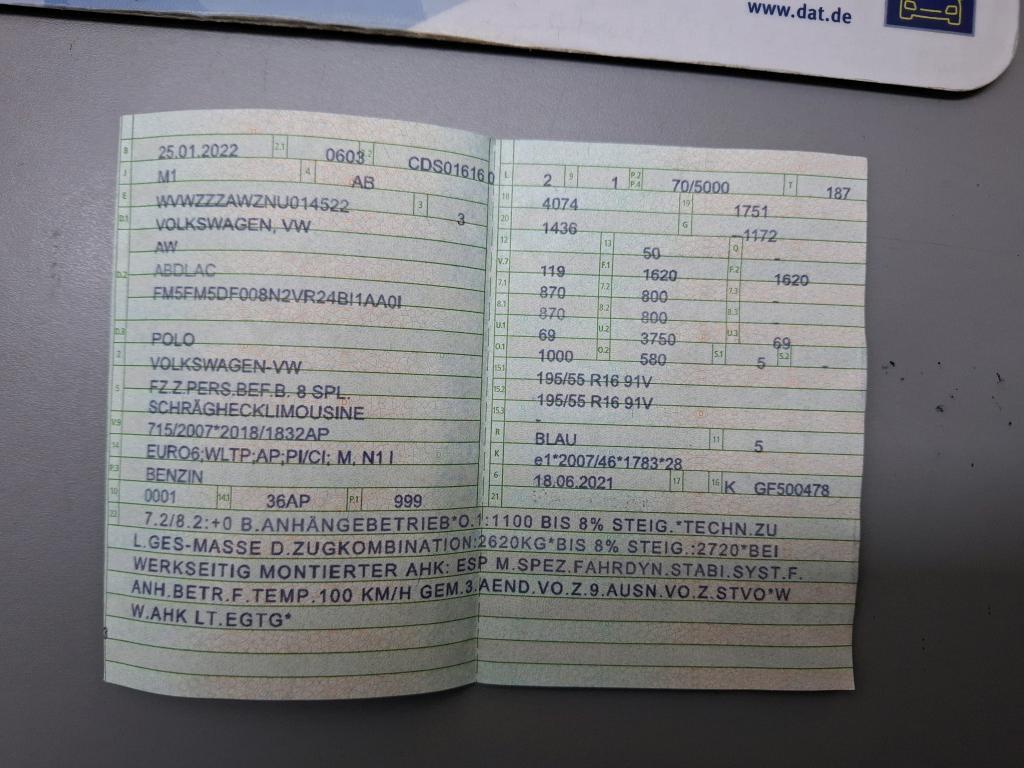 www.dat.de
B 25.01.2022 2.1 0603 2.2 CDS01616 0
J M1 4 AB
E WVWZZZAWZNU014522 3 3
D.1 VOLKSWAGEN, VW
AW
D.2 ABDLAC
FM5FM5DF008N2VR24BI1AA0I
D.3 POLO
2 VOLKSWAGEN-VW
5 FZ.Z.PERS.BEF.B. 8 SPL.
SCHRÄGHECKLIMOUSINE
V.9 715/2007*2018/1832AP
14 EURO6;WLTP;AP;PI/CI; M, N1 I
P.3 BENZIN
10 0001 14.1 36AP P.1 999
L 2 9 1 P.2 P.4 70/5000 T 187
18 4074 19 1751
20 1436 G -1172
12 - 13 50 Q -
V.7 119 F.1 1620 F.2 1620
7.1 870 7.2 800 7.3 -
8.1 870 8.2 800 8.3 -
U.1 69 U.2 3750 U.3 69
O.1 1000 O.2 580 S.1 5 S.2 -
15.1 195/55 R16 91V
15.2 195/55 R16 91V
15.3 -
R BLAU 11 5
K e1*2007/46*1783*28
6 18.06.2021 17 K 16 GF500478
21
22 7.2/8.2:+0 B.ANHÄNGEBETRIEB*O.1:1100 BIS 8% STEIG.*TECHN.ZU
L.GES-MASSE D.ZUGKOMBINATION:2620KG*BIS 8% STEIG.:2720*BEI
WERKSEITIG MONTIERTER AHK: ESP M.SPEZ.FAHRDYN.STABI.SYST.F.
ANH.BETR.F.TEMP.100 KM/H GEM.3.AEND.VO.Z.9.AUSN.VO.Z.STVO*W
W.AHK LT.EGTG*